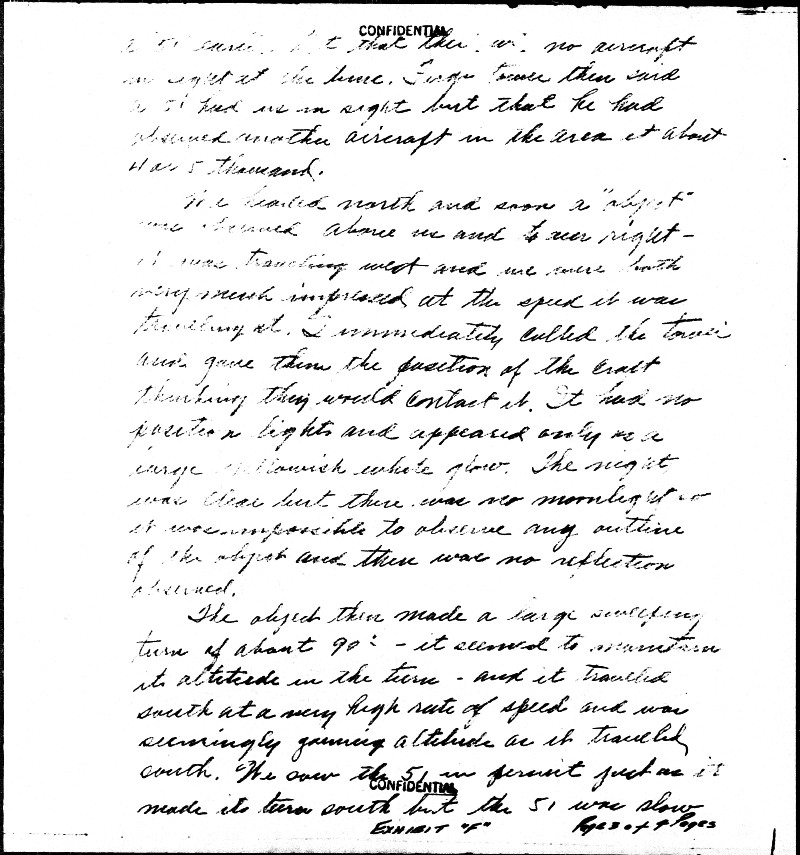 CONFIDENTIAL
a 51 that there no aircraft
in sight at the time. Fargo tower then said
a 51 had us in sight but that he had
observed another aircraft in the area at about
4 or 5 thousand.
We headed north and soon a "object"
was observed above us and to our right -
it was traveling west and we were both
very much impressed at the speed it was
traveling at. I immediately called the tower
and gave them the position of the craft
thinking they would contact it. It had no
position lights and appeared only as a
large yellowish white glow. The night
was clear but there was no moonlight so
it was impossible to observe any outline
of the object and there was no reflection
observed.
The object then made a large sweeping
turn of about 90° - it seemed to maintain
its altitude in the turn - and it traveled
south at a very high rate of speed and was
seemingly gaining altitude as it traveled
south. We saw the 51 in persuit just as it
CONFIDENTIAL
made its turn south but the 51 was slow
EXHIBIT "F" Page 3 of 4 Pages